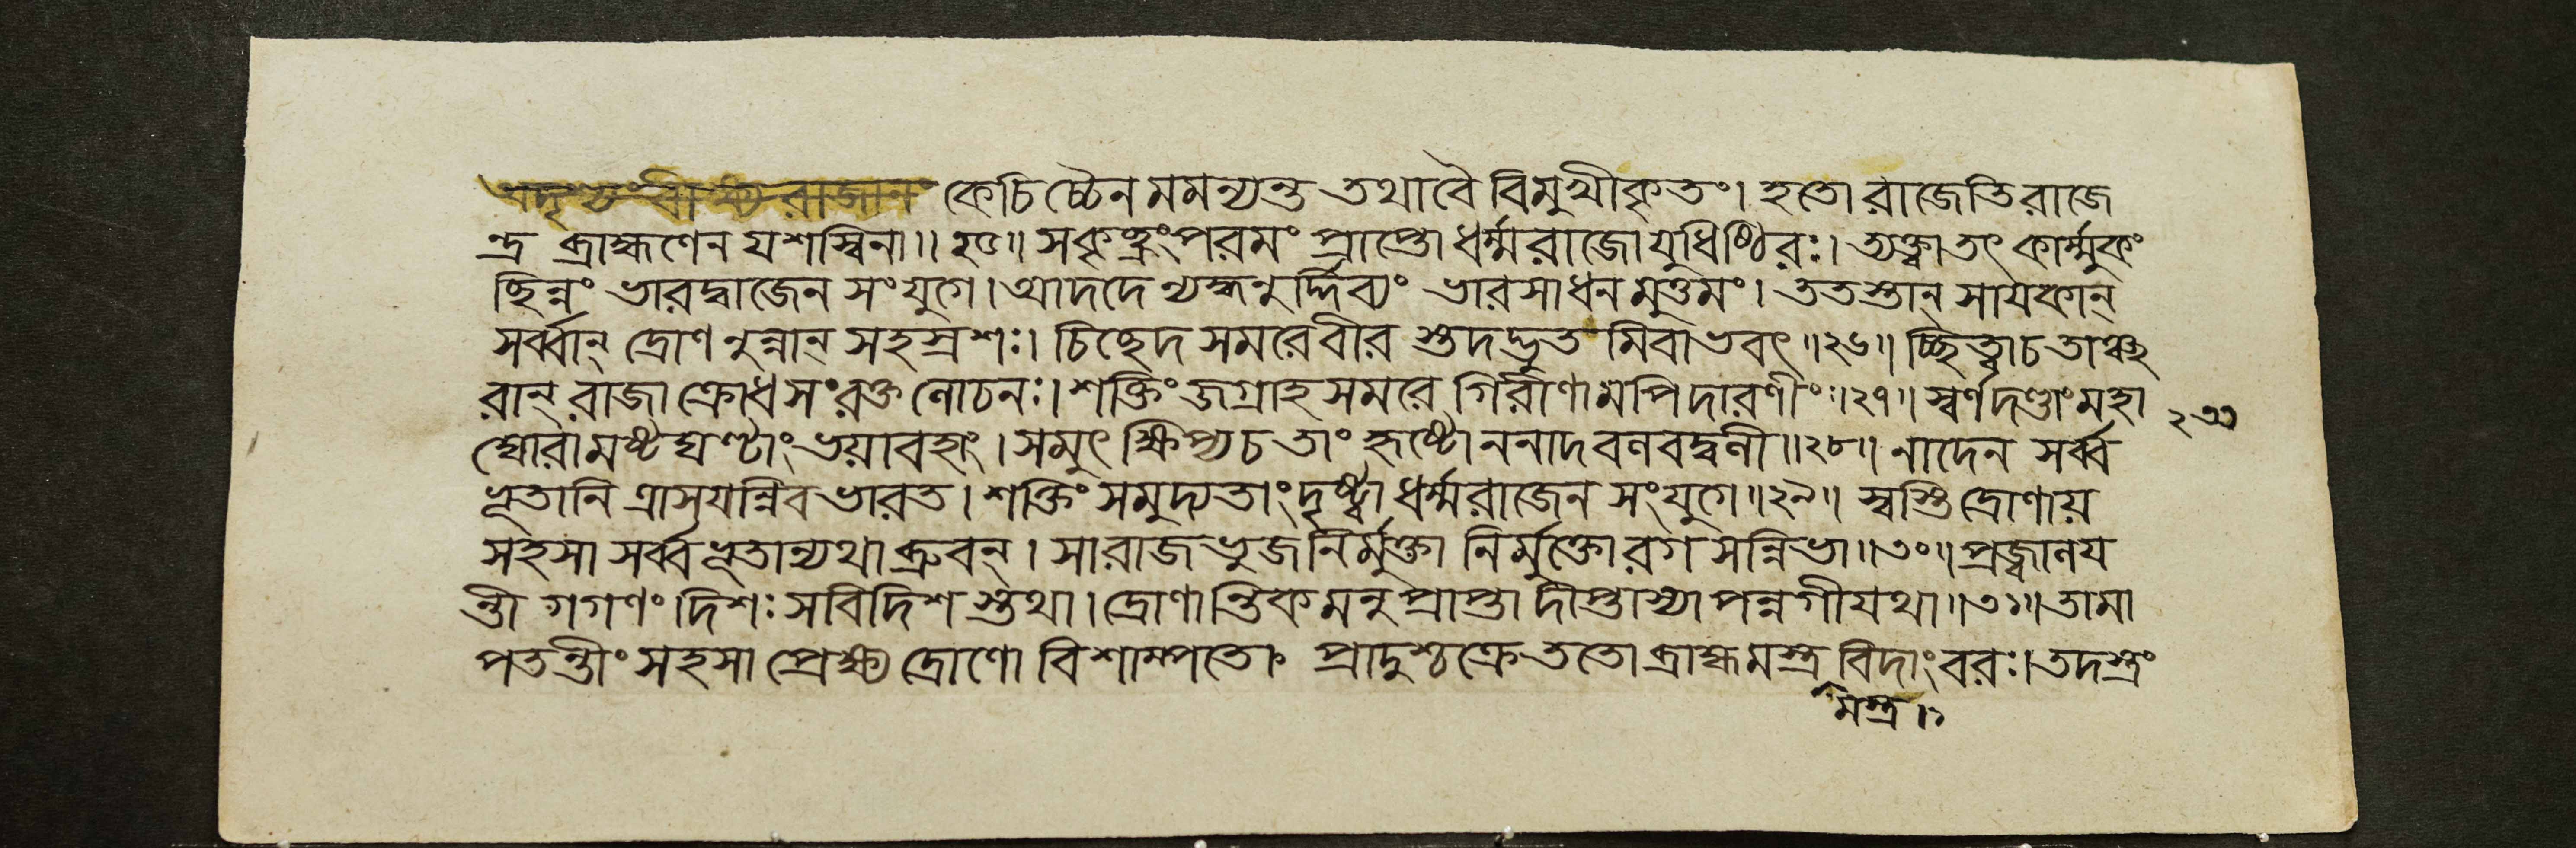 অদৃশ্যং বীক্ষ্য রাজানং কেচিচ্চৈনমমন্যন্ত তথাবৈ বিমুখীকৃতং। হতো রাজেতি রাজে
ন্দ্র ব্রাহ্মণেন যশস্বিনা॥২৫॥ সকৃচ্ছ্রং পরমং প্রাপ্তো ধর্ম্মরাজো যুধিষ্ঠিরঃ। ত্যক্ত্বা তৎ কার্ম্মুকং
চ্ছিন্নং ভারদ্বাজেন সংযুগে। আদদে ন্যদ্ধনুর্দ্দিব্যং ভারসাধনমুত্তমং। ততস্তান্ সায়কান্
সর্ব্বান্ দ্রোণনুন্নান্ সহস্রশঃ। চিচ্ছেদ সমরে বীর স্তদদ্ভুত মিবাভবৎ॥২৬॥ চ্ছিত্ত্বাচ তাঞ্ছ
রান্ রাজা ক্রোধসংরক্তলোচনঃ। শক্তিং জগ্রাহ সমরে গিরীণামপি দারণীং॥২৭॥ স্বর্ণদণ্ডাং মহা
২৩৩
ঘোরামষ্টঘণ্টাং ভয়াবহাং। সমুৎক্ষিপ্যচ তাং হৃষ্টো ননাদ বলবদ্বলী॥২৮॥ নাদেন সর্ব্ব
ভূতানি ত্রাসযন্নিব ভারত। শক্তিং সমুদ্যতাং দৃষ্ট্বা ধর্ম্মরাজেন সংযুগে॥২৯॥ স্বস্তি দ্রোণায়
সহসা সর্ব্বভূতান্যথাব্রুবন্। সা রাজভুজনির্মুক্তা নির্মুক্তোরগসন্নিভা॥৩০॥ প্রজ্বালয
ন্তী গগণং দিশঃ সবিদিশ স্তথা। দ্রোণান্তিকমনুপ্রাপ্তা দীপ্তাস্যা পন্নগী যথা॥৩১॥ তামা
পতন্তীং সহসা প্রেক্ষ্য দ্রোণো বিশাম্পতে। প্রাদুশ্চক্রে ততো ব্রাহ্মমস্ত্র বিদাংবরঃ। তদস্ত্রং
মস্ত্র।১